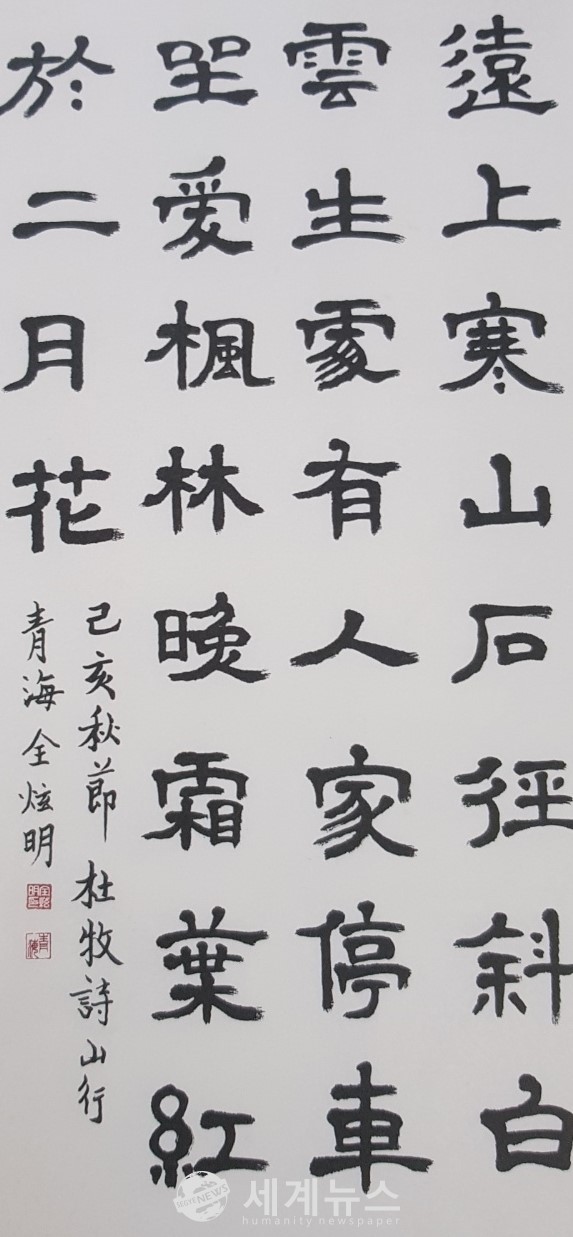 遠上寒山石徑斜白
雲生處有人家停車
坐愛楓林晚霜葉紅
於二月花
己亥秋節 杜牧詩山行
青海 全炫明
全炫明印
青海
SEGYE NEWS
세계뉴스
humanity newspaper